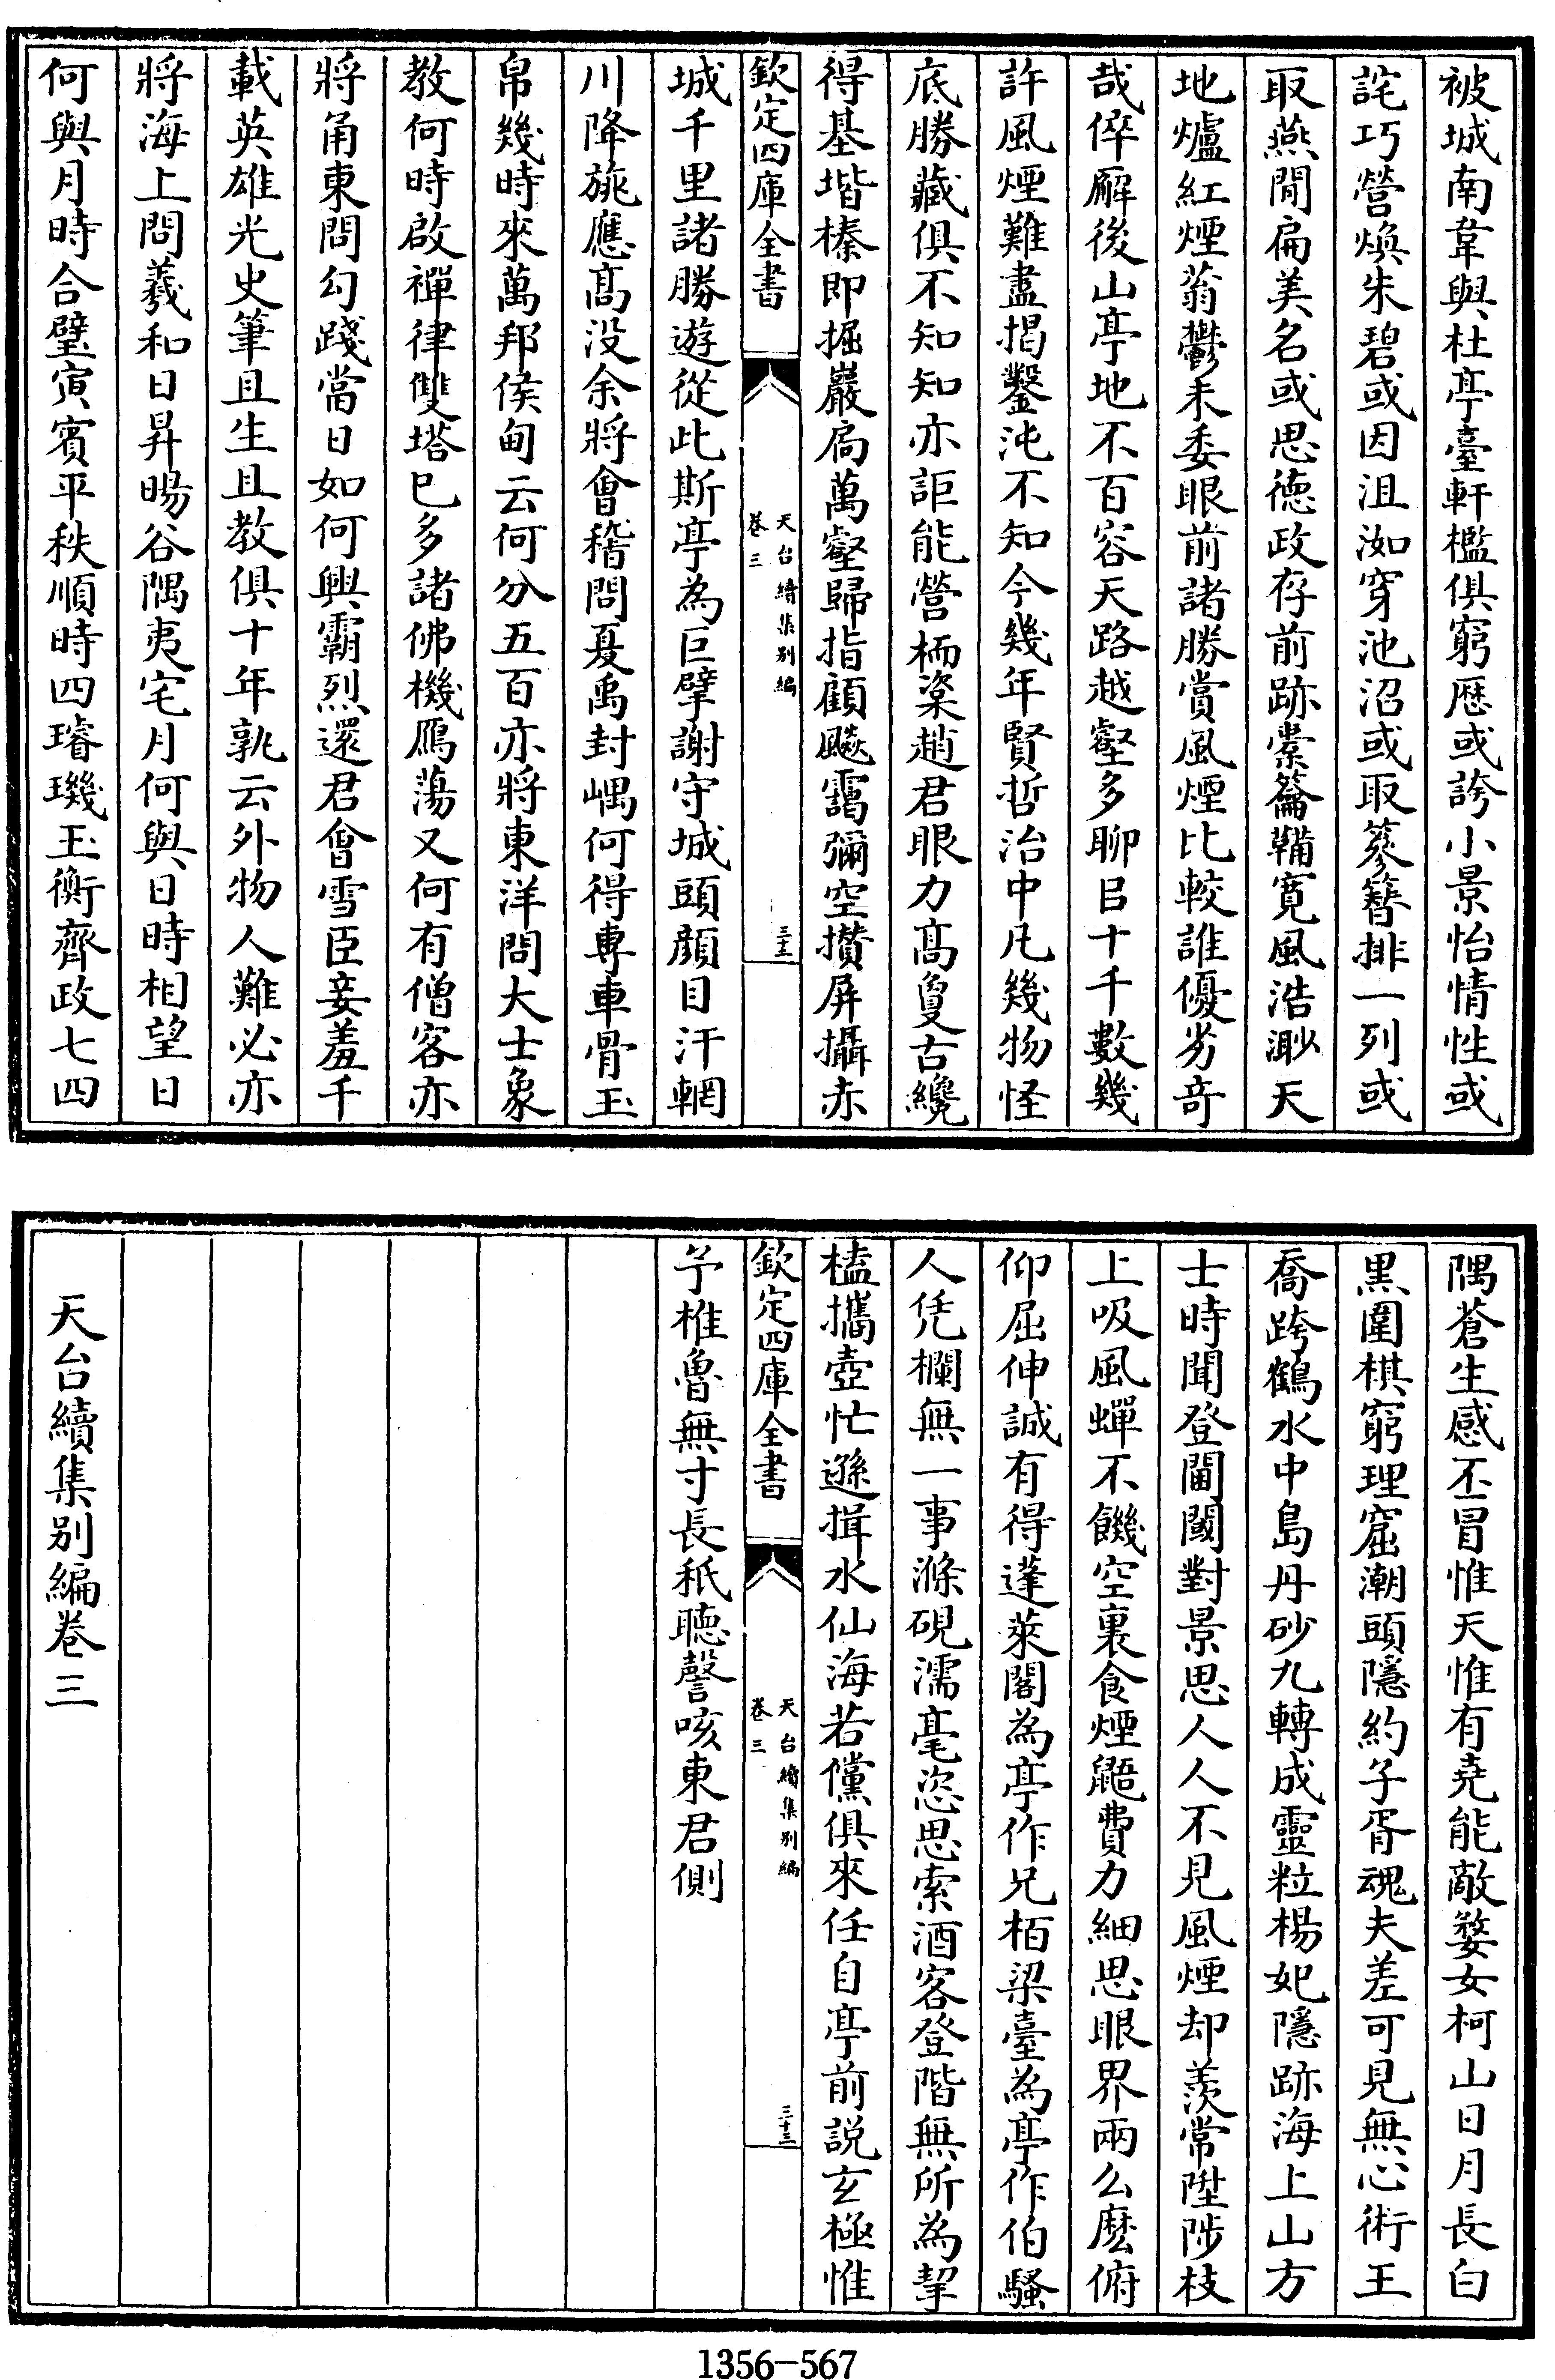 被城南韋與杜亭臺軒檻俱窮厯或誇小景怡情性或
詫巧營煥朱碧或因沮洳穿池沼或取篸簪排一列或
取燕閒扁美名或思德政存前跡橐籥鞴寛風浩渺天
地爐紅煙蓊鬱未委眼前諸勝賞風煙比較誰優劣竒
哉倅廨後山亭地不百容天路越壑多聊㠯十千數幾
許風煙難盡掲鑿沌不知今幾年賢哲治中凡幾物怪
底勝藏俱不知知亦詎能營栭楶趙君眼力髙敻古纔
得基堦榛即掘巖扃萬壑歸指顧飈靄彌空攅屏攝赤
欽定四庫全書
天台續集别編
卷三
三十二
城千里諸勝遊從此斯亭為巨擘謝守城頭顔目汗輞
川降旐應髙没余將㑹稽問夏禹封嵎何得専車骨玉
帛幾時來萬邦侯甸云何分五百亦將東洋問大士象
教何時啟禪律雙塔已多諸佛機鴈蕩又何有僧客亦
將甬東問勾踐當日如何興霸烈還君㑹雪臣妾羞千
載英雄光史筆且生且教俱十年孰云外物人難必亦
將海上問羲和日昇暘谷隅夷宅月何與日時相望日
何與月時合璧寅賓平秩順時四璿璣玉衡齊政七四
隅蒼生感丕冒惟天惟有堯能敵婺女柯山日月長白
黒圍棋窮理窟潮頭隱約子胥魂夫差可見無心術王
喬跨鶴水中島丹砂九轉成靈粒楊妃隱跡海上山方
士時聞登閫閾對景思人人不見風煙却羡常陞陟枝
上吸風蟬不饑空裏食煙䶉費力細思眼界兩么麽俯
仰屈伸誠有得蓬萊閣為亭作兄栢梁臺為亭作伯騷
人凭欄無一事滌硯濡毫恣思索酒客登階無所為挈
榼攜壺忙遜揖水仙海若儻俱來任自亭前説玄極惟
欽定四庫全書
天台續集别編
卷三
三十三
予椎魯無寸長秖聽謦咳東君側
天台續集别編卷三
1356-567